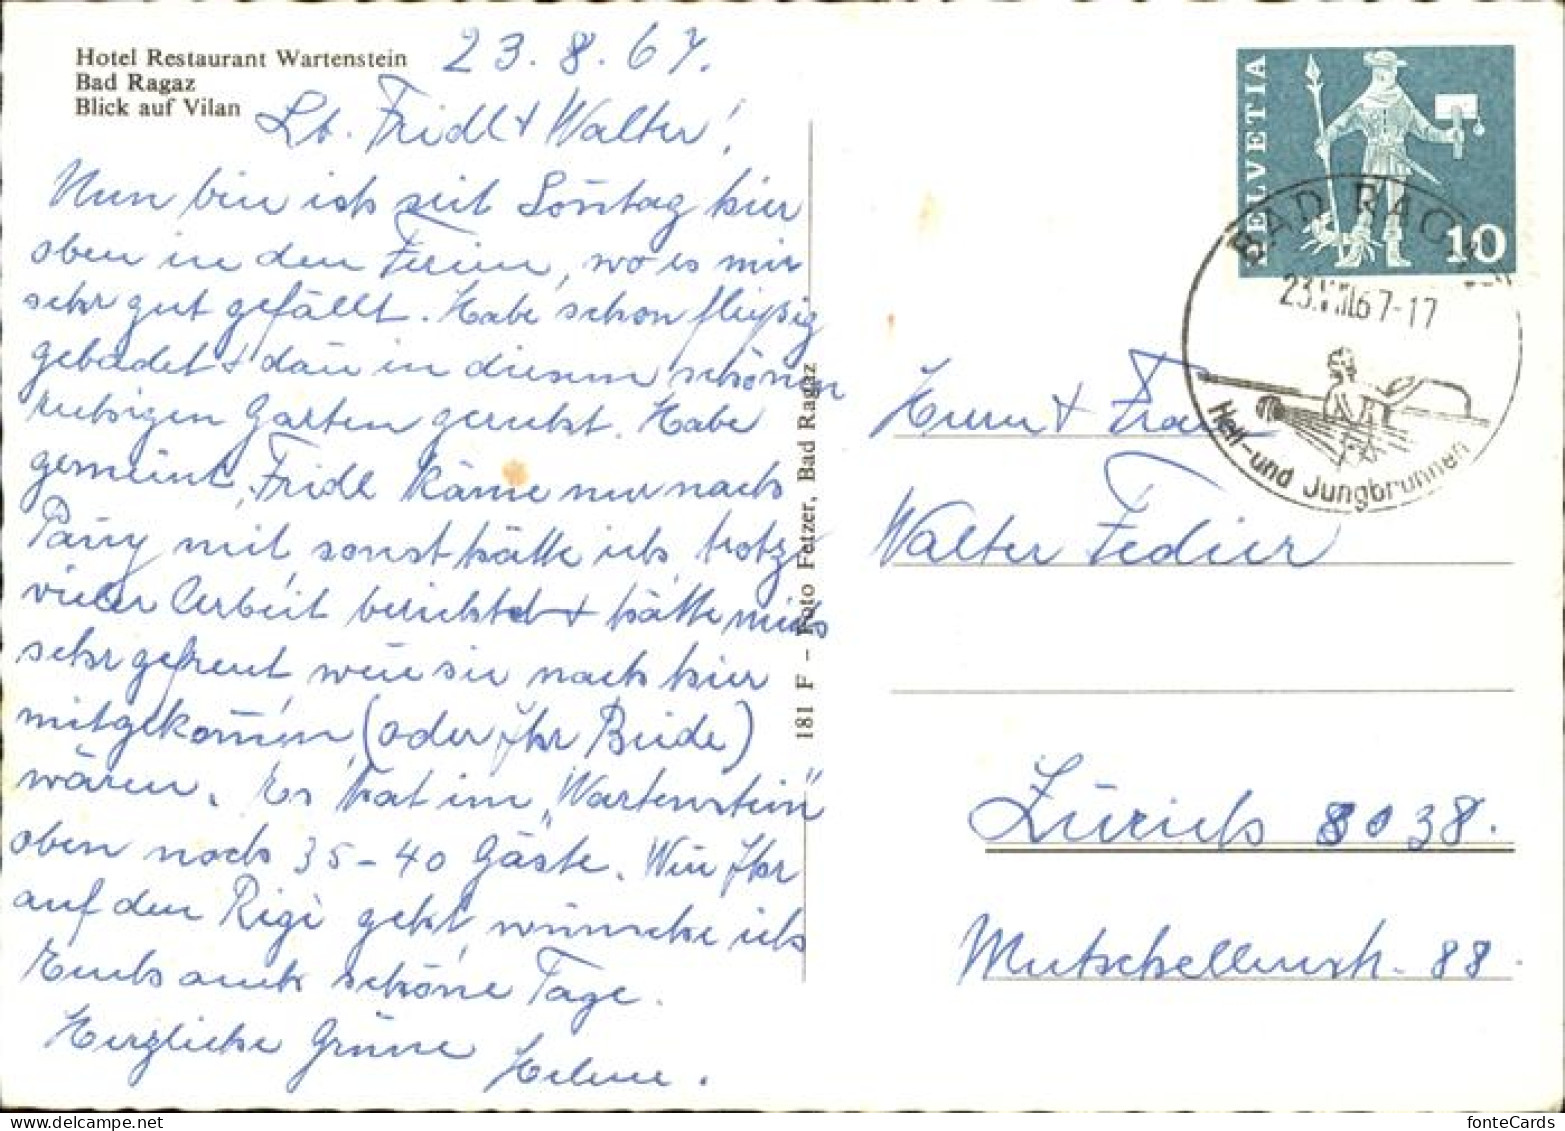 Hotel Restaurant Wartenstein
Bad Ragaz
Blick auf Vilan
23.8.67.
Lb. Fridl + Walter!
Nun bin ich seit Son̄tag hier
oben in den Ferien, wo es mir
sehr gut gefällt. Habe schon fleißig
gebadet + dan̄ in diesem schönen
ruhigen Garten geruht. Habe
gemeint, Fridl käme nur nach
mit sonst hätte ich trotz
vieler Arbeit berichtet + hätte mich
sehr gefreut wen̄ sie nach hier
mitgekom̄en (oder Ihr Beide)
wären. Es hat im „Wartenstein"
oben noch 35-40 Gäste. Wen̄ Ihr
auf den Rigi geht, wünsche ich
Euch auch schöne Tage.
Herzliche Grüsse
Helene.
181 F – Foto Fetzer, Bad Ragaz
HELVETIA
10
BAD RAGAZ
23.VIII.67-17
Heil-und Jungbrunnen
Herrn + Frau
Walter Fedier
Zürich 8038.
Mutschellenstr. 88.
fonteCards